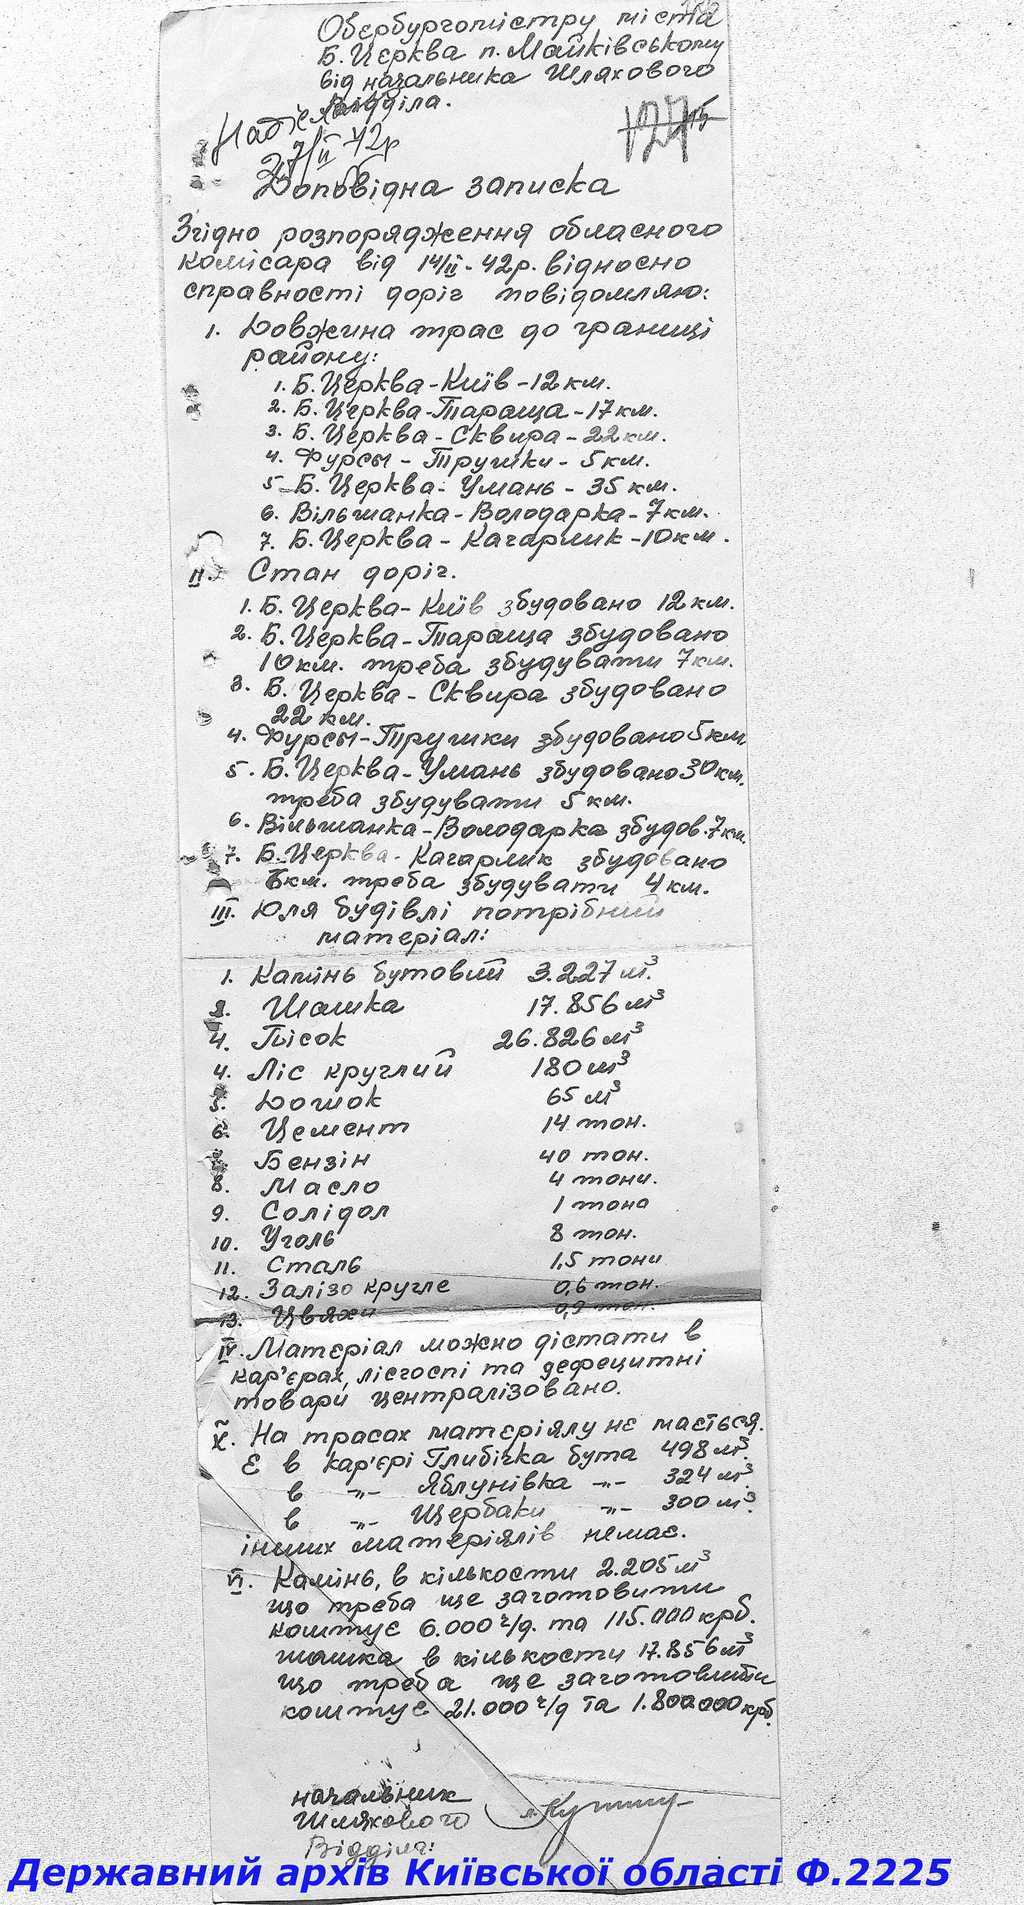 Обербургомістру міста
Б. Церква п. Майківському
від начальника Шляхового
Відділа.
127
27/II 42р
Доповідна записка
Згідно розпорядження обласного
комісара від 14/II-42р. відносно
справності доріг повідомляю:
1. Довжина трас до границі
району:
1. Б. Церква-Київ-12км.
2. Б. Церква-Тараща-17км.
3. Б. Церква-Сквира-22км.
4. Фурсы-Трушки-5км.
5. Б. Церква-Умань-35км.
6. Вільшанка-Володарка-7км.
7. Б. Церква-Кагарлик-10км.
II. Стан доріг.
1. Б. Церква-Київ збудовано 12км.
2. Б. Церква-Тараща збудовано
10км. треба збудувати 7км.
3. Б. Церква-Сквира збудовано
22км.
4. Фурсы-Трушки збудовано 5км
5. Б. Церква-Умань збудовано 30км.
треба збудувати 5км.
6. Вільшанка-Володарка збудов. 7км.
7. Б. Церква-Кагарлик збудовано
6км. треба збудувати 4км.
III. Для будівлі потрібний
матеріал:
1. Камінь бутовий 3.227м³.
2. Шашка 17.856м³
4. Пісок 26.826м³
4. Ліс круглий 180м³
5. Дошок 65м³
6. Цемент 14 тон.
Бензін 40 тон.
8. Масло 4 тони.
9. Солідол 1 тона
10. Уголь 8 тон.
11. Сталь 1,5 тони
12. Залізо кругле 0,6 тон.
13. Цвяхи 0,9 тон.
IV. Матеріал можно дістати в
кар'єрах, лісгоспі та дефецитні
товари централізовано.
V. На трасах матеріялу не мається.
Є в кар'єрі Глибічка бута 498м³.
в -"- Яблунівка -"- 324м³.
в -"- Щербаки -"- 300м³.
інших матеріялів немає.
VI. Камінь, в кількости 2.205м³
що треба ще заготовити
коштує 6.000 ч/д. та 115.000крб.
шашка в кількости 17.856м³
що треба ще заготовити
коштує 21.000 ч/д та 1.800000крб.
начальник
Шляхового
Відділа:
Державний архів Київської області Ф.2225